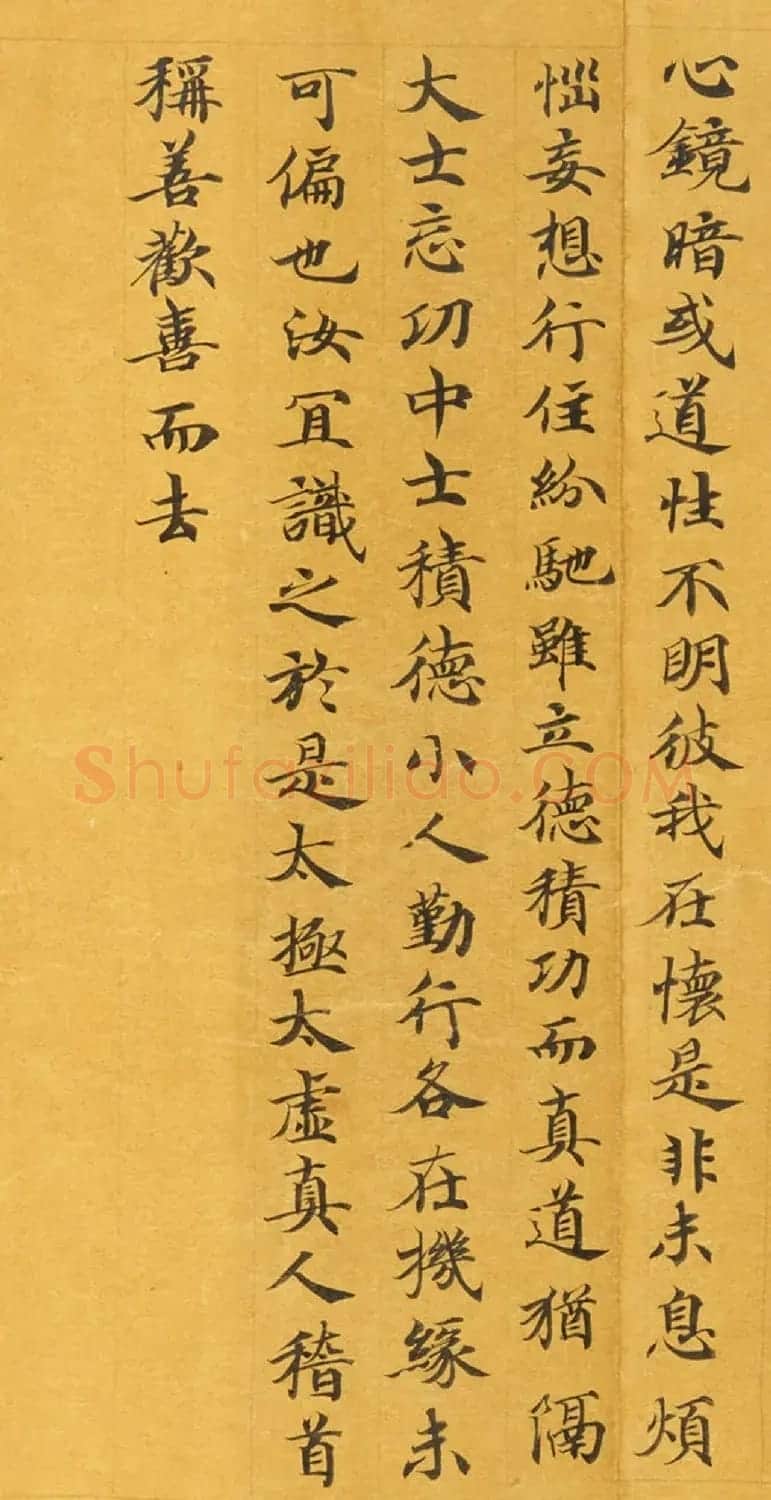 心鏡暗或道性不明彼我在懷是非未息煩
惱妄想行住紛馳雖立德積功而真道猶隔
大士忘功中士積德小人勤行各在機緣未
可偏也汝冝識之於是太極太虛真人稽首
稱善歡喜而去